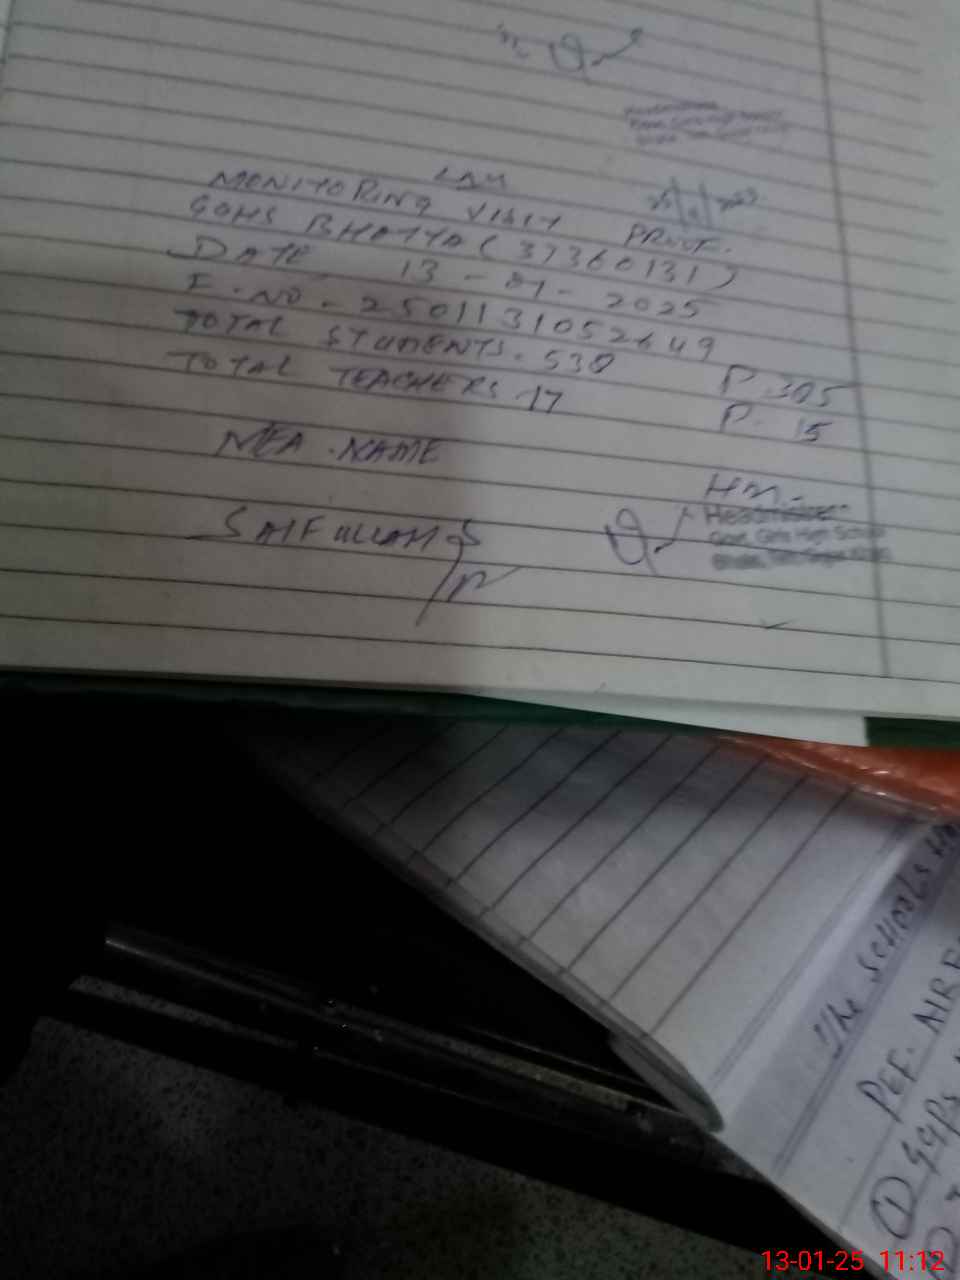 LAH
MONITORING VISIT PROOF.
GGHS BHATTA (37360131)
DATE 13-01-2025
E.NO. 2501131052649
TOTAL STUDENTS. 530 P. 305
TOTAL TEACHERS 17 P. 15
MEA. NAME
HM.
Headmistress
Govt. Girls High School
SAIFULLAH
The SCHOOLS
PEF.
① Gaps
13-01-25 11:12